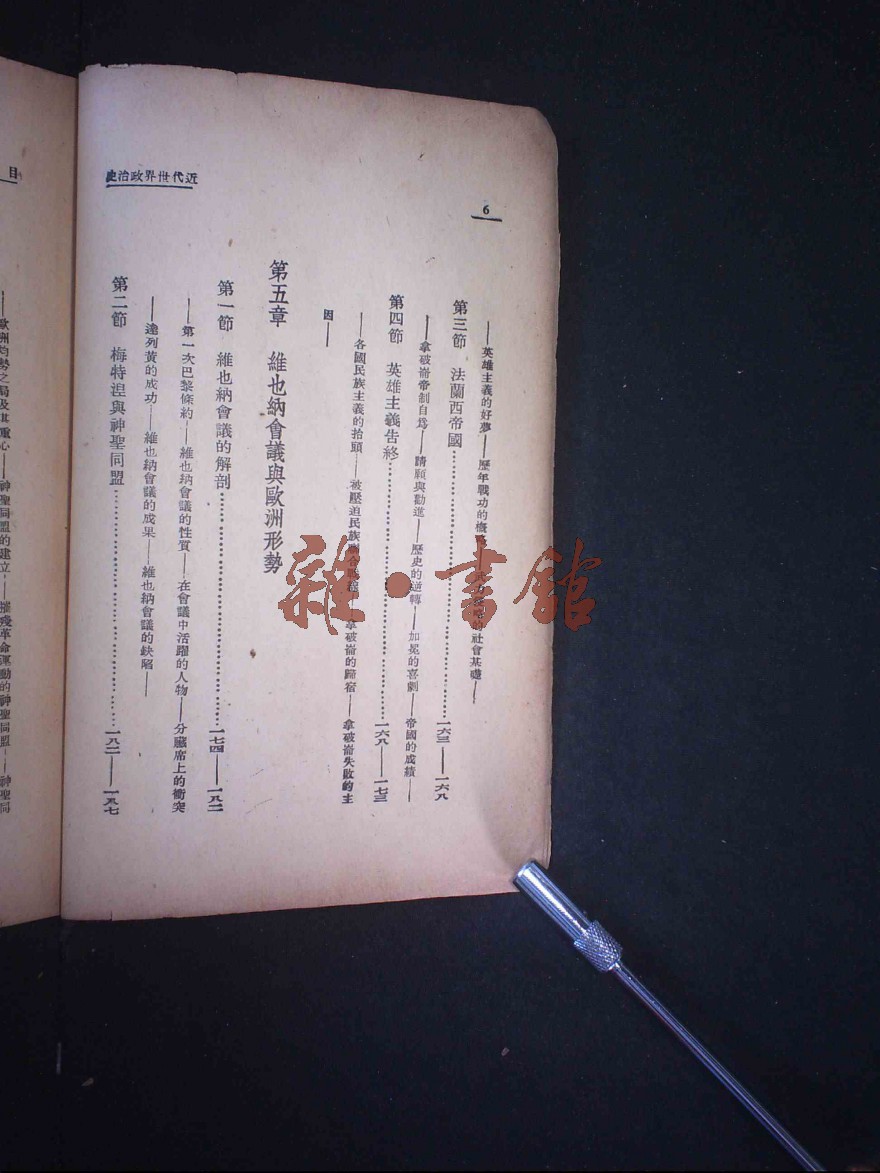 近代世界政治史
6
——英雄主義的好夢——歷年戰功的概 的社會基礎——
第三節 法蘭西帝國……一六三——一六八
——拿破崙帝制自爲——請願與勸進——歷史的逆轉——加冕的喜劇——帝國的成績——
第四節 英雄主義告終……一六八——一七三
——各國民族主義的抬頭——被壓迫民族 拿破崙的歸宿——拿破崙失敗的主
因——
第五章 維也納會議與歐洲形勢
第一節 維也納會議的解剖……一七四——一八二
——第一次巴黎條約——維也納會議的性質——在會議中活躍的人物——分臟席上的衝突
——達列黃的成功——維也納會議的成果——維也納會議的缺陷——
第二節 梅特涅與神聖同盟……一八二——一八七
目
——歐洲均勢之局及其重心——神聖同盟的建立——摧殘革命運動的神聖同盟——神聖同
雜·書館